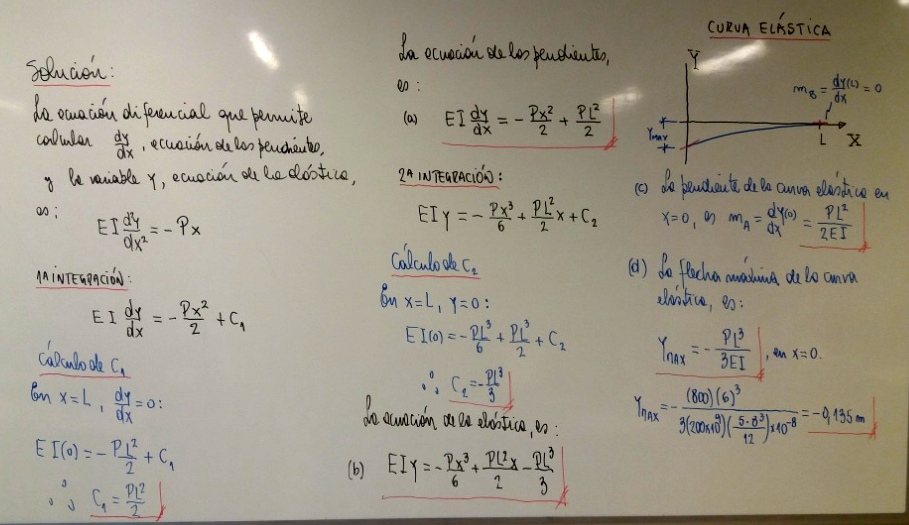 Solución:
La ecuación diferencial que permite
calcular dy/dx, ecuación de las pendientes,
y la variable Y, ecuación de la elástica,
es:
EI dy/dx² = - Px
1ª INTEGRACIÓN:
EI dy/dx = - Px²/2 + C₁
Cálculo de C₁
En x=L, dy/dx = 0:
EI(0) = - PL²/2 + C₁
∴ C₁ = PL²/2
La ecuación de las pendientes,
es:
(a) EI dy/dx = - Px²/2 + PL²/2
2ª INTEGRACIÓN:
EIy = - Px³/6 + PL²/2 x + C₂
Cálculo de C₂
En x=L, y=0:
EI(0) = - PL³/6 + PL³/2 + C₂
∴ C₂ = - PL³/3
La ecuación de la elástica, es:
(b) EIY = - Px³/6 + PL²x/2 - PL³/3
CURVA ELÁSTICA
Y
m_B = dy(L)/dx = 0
Ymax
L X
(c) La pendiente de la curva elástica en
x=0, es m_A = dy(0)/dx = PL²/2EI
(d) La flecha máxima de la curva
elástica, es:
Y_MAX = - PL³/3EI, en x=0.
Y_MAX = - (800)(6)³/3(200x10⁹)(5·8³/12)x10⁻⁸ = -0,135 m